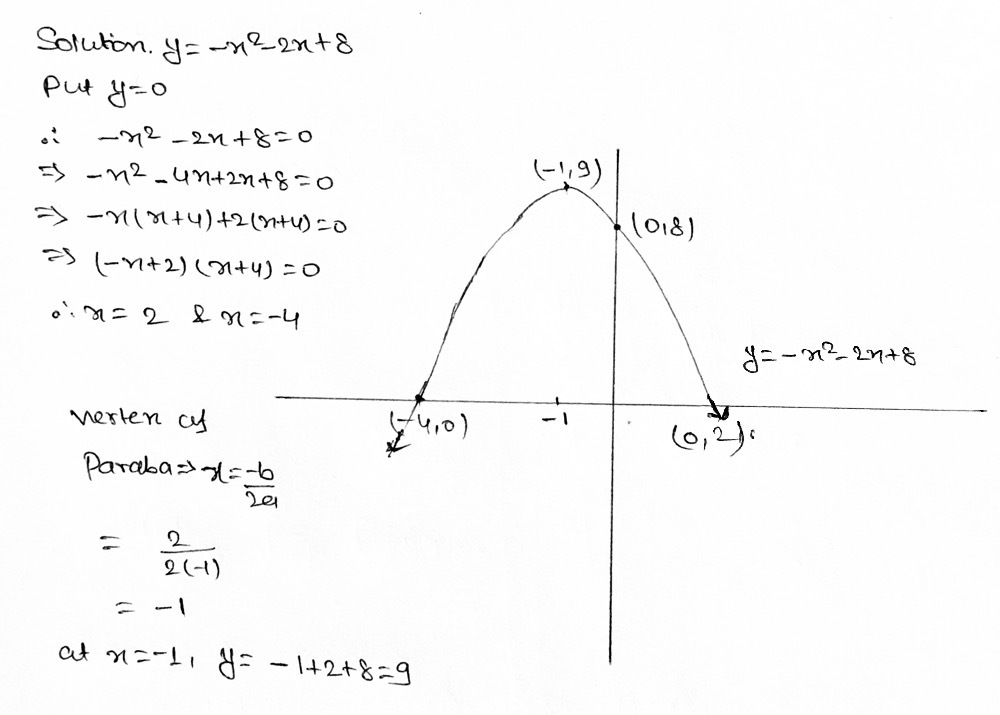 Solution. y = -x² - 2x + 8
Put y = 0
∴ -x² - 2x + 8 = 0
⇒ -x² - 4x + 2x + 8 = 0
⇒ -x(x+4) + 2(x+4) = 0
⇒ (-x+2)(x+4) = 0
∴ x = 2 & x = -4
Vertex of
Paraba ⇒ x = -b/2a
= 2/2(-1)
= -1
at x = -1, y = -1+2+8 = 9
(-1,9)
(0,8)
y = -x² - 2x + 8
(-4,0)
-1
(0,2)